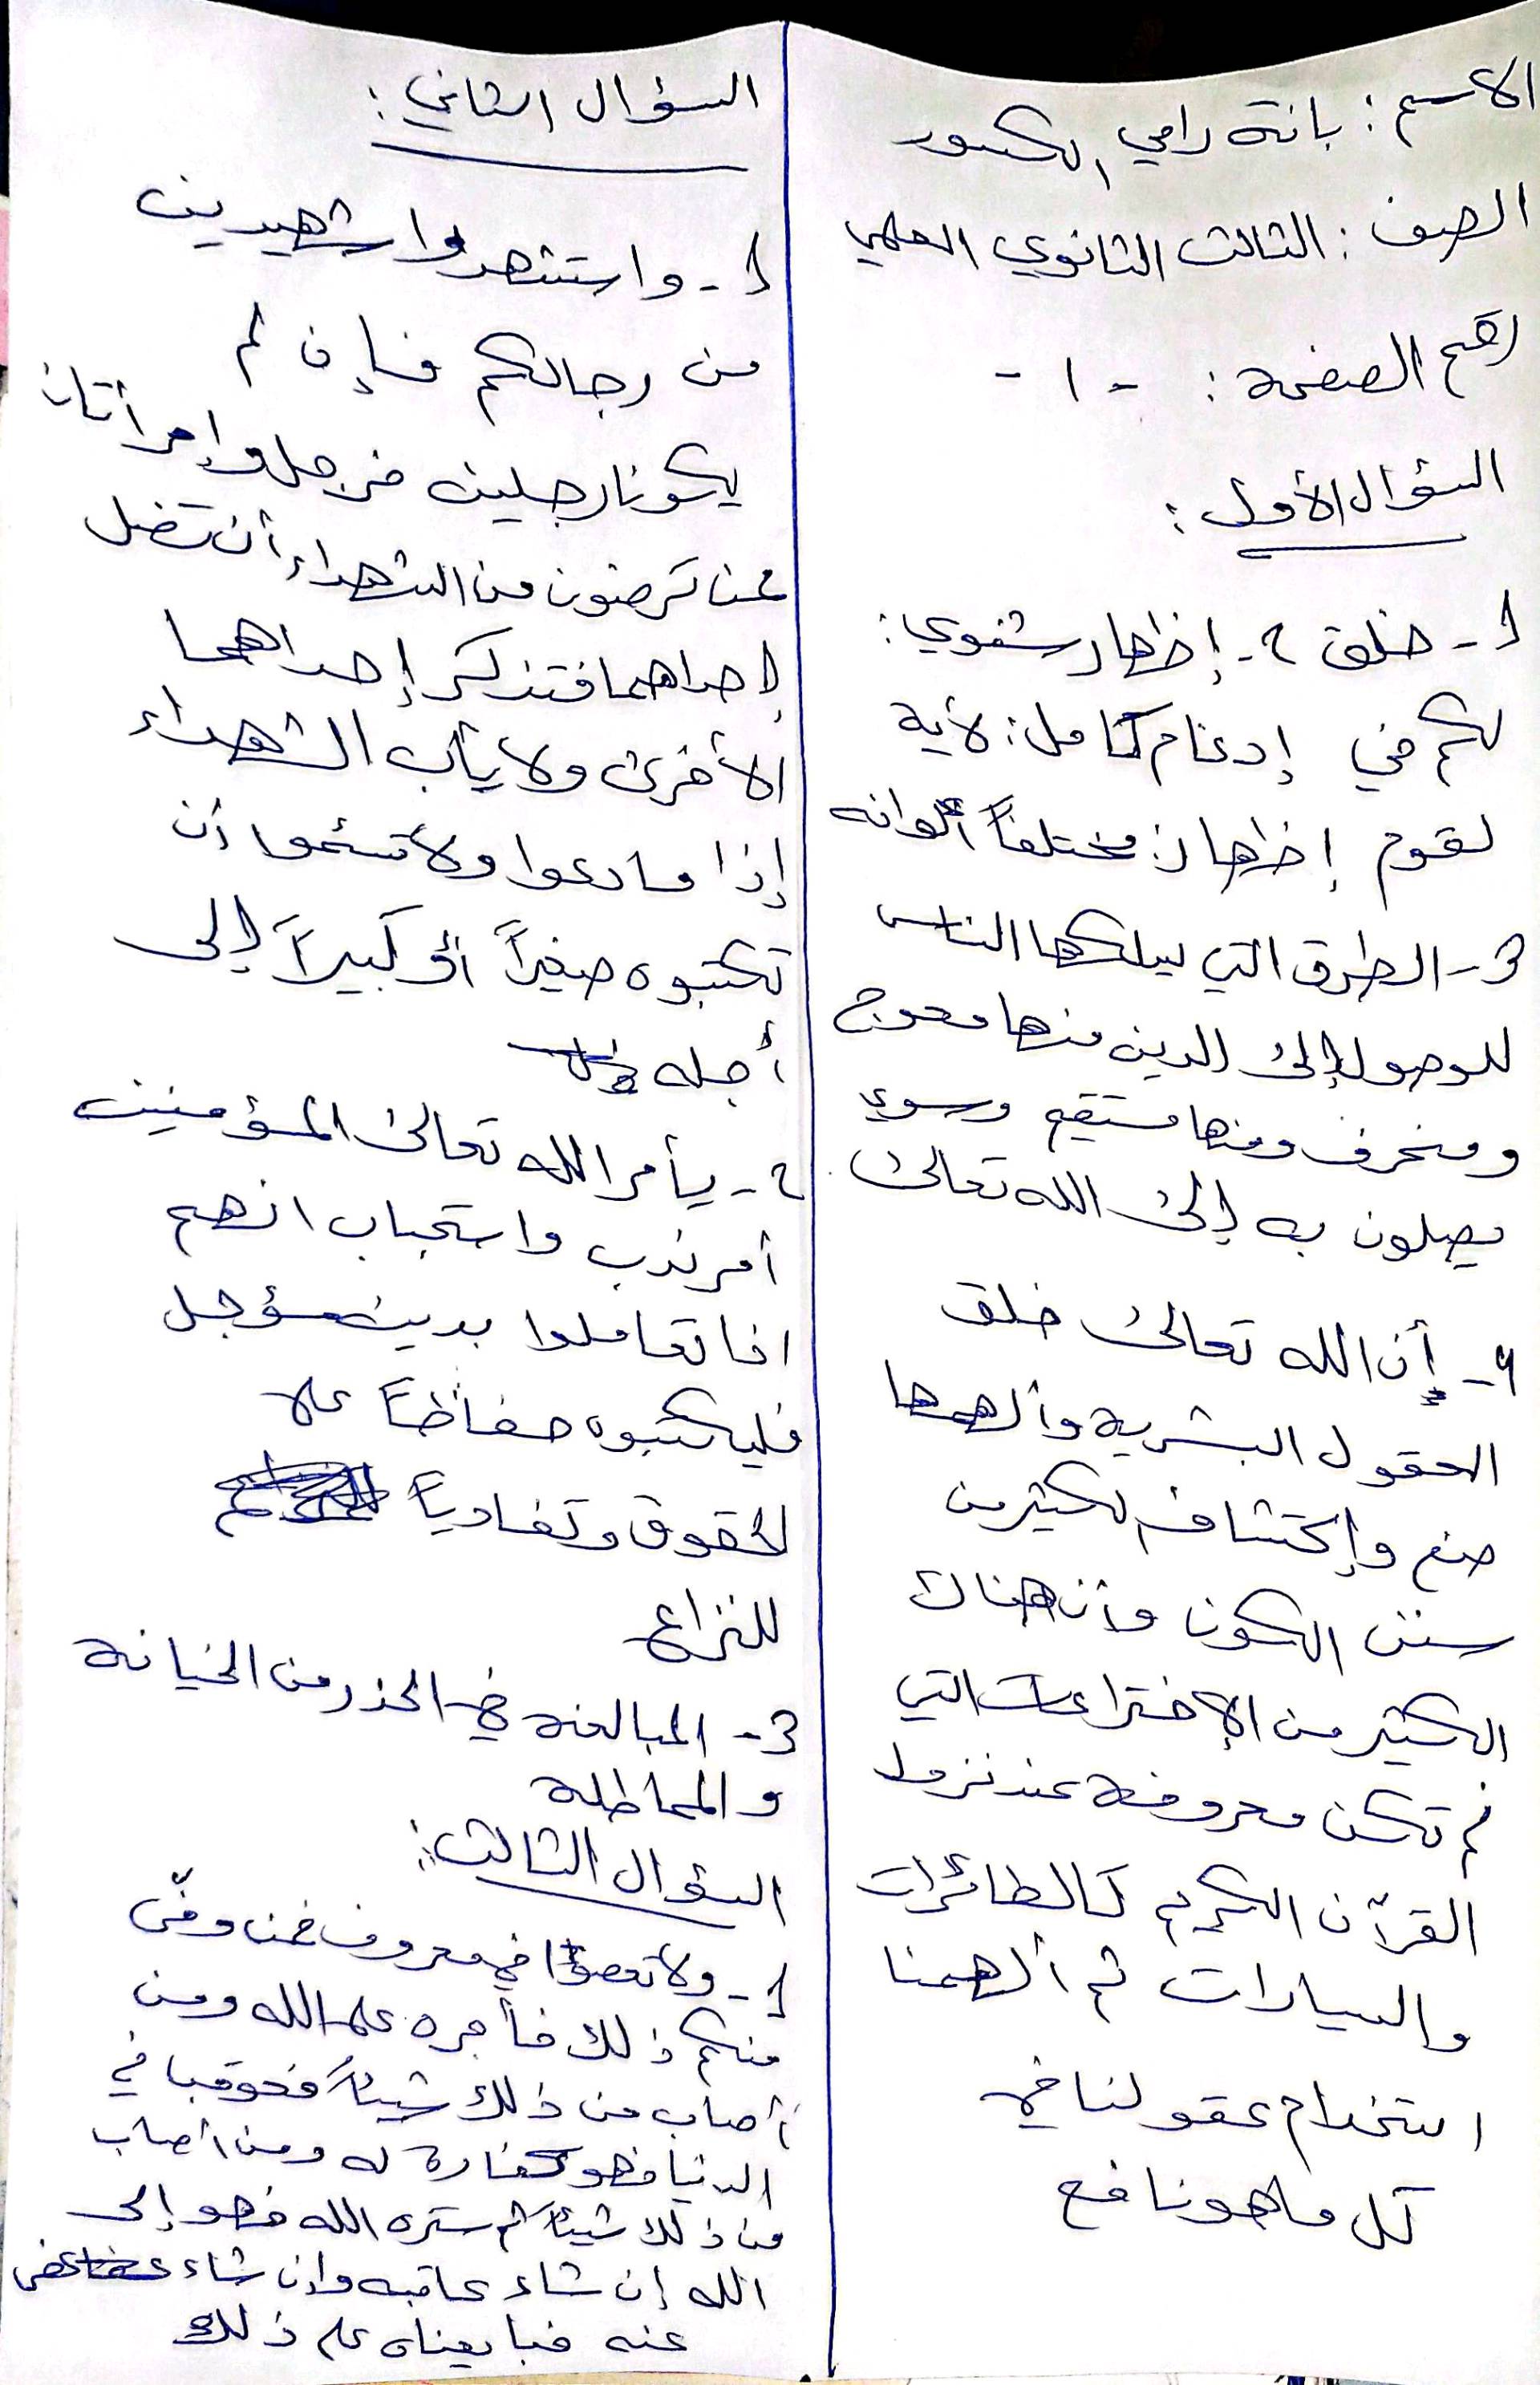 الاسم : بانة رامي الكسور
الصف : الثالث الثانوي العلمي
رقم الصفحة : - ١ -
السؤال الأول :
1- خلق ٢- إظهار شفوي :
لكم في إدغام كامل : لآية
لقوم إظهار : مختلفاً ألوانه
3- الطرق التي يسلكها الناس
للوصول إلى الدين منها معوج
ومنحرف ومنها مستقيم وسوي
يصلون به إلى الله تعالى
4- أن الله تعالى خلق
العقول البشرية وألهمها
صنع وإكتشاف الكثير من
سنن الكون وأن هناك
الكثير من الإختراعات التي
لم تكن معروفة عند نزول
القرآن الكريم كالطائرات
والسيارات ثم ألهمنا
استخدام عقولنا في
كل ما هو نافع
السؤال الثاني :
1- واستشهدوا شهيدين
من رجالكم فإن لم
يكونا رجلين فرجل وإمرأتان
ممن ترضون من الشهداء أن تضل
إحداهما فتذكر إحداهما
الأخرى ولا يأب الشهداء
إذا ما دعوا ولا تسئموا أن
تكتبوه صغيراً أو كبيراً إلى
أجله
٢- يأمر الله تعالى المؤمنين
أمر ندب واستحباب انهم
اذا تعاملوا بدين مؤجل
فليكتبوه حفاظاً على
الحقوق وتفادياً
للنزاع
3- المبالغة في الحذر من الخيانة
والمماطلة
السؤال الثالث :
1- ولا تعصوا في معروف فمن وفّى
منكم ذلك فأجره على الله ومن
أصاب من ذلك شيئاً فعوقب في
الدنيا فهو كفارة له ومن أصاب
من ذلك شيئاً ثم ستره الله فهو إلى
الله إن شاء عاقبه وإن شاء عفى
عنه فبايعناه على ذلك